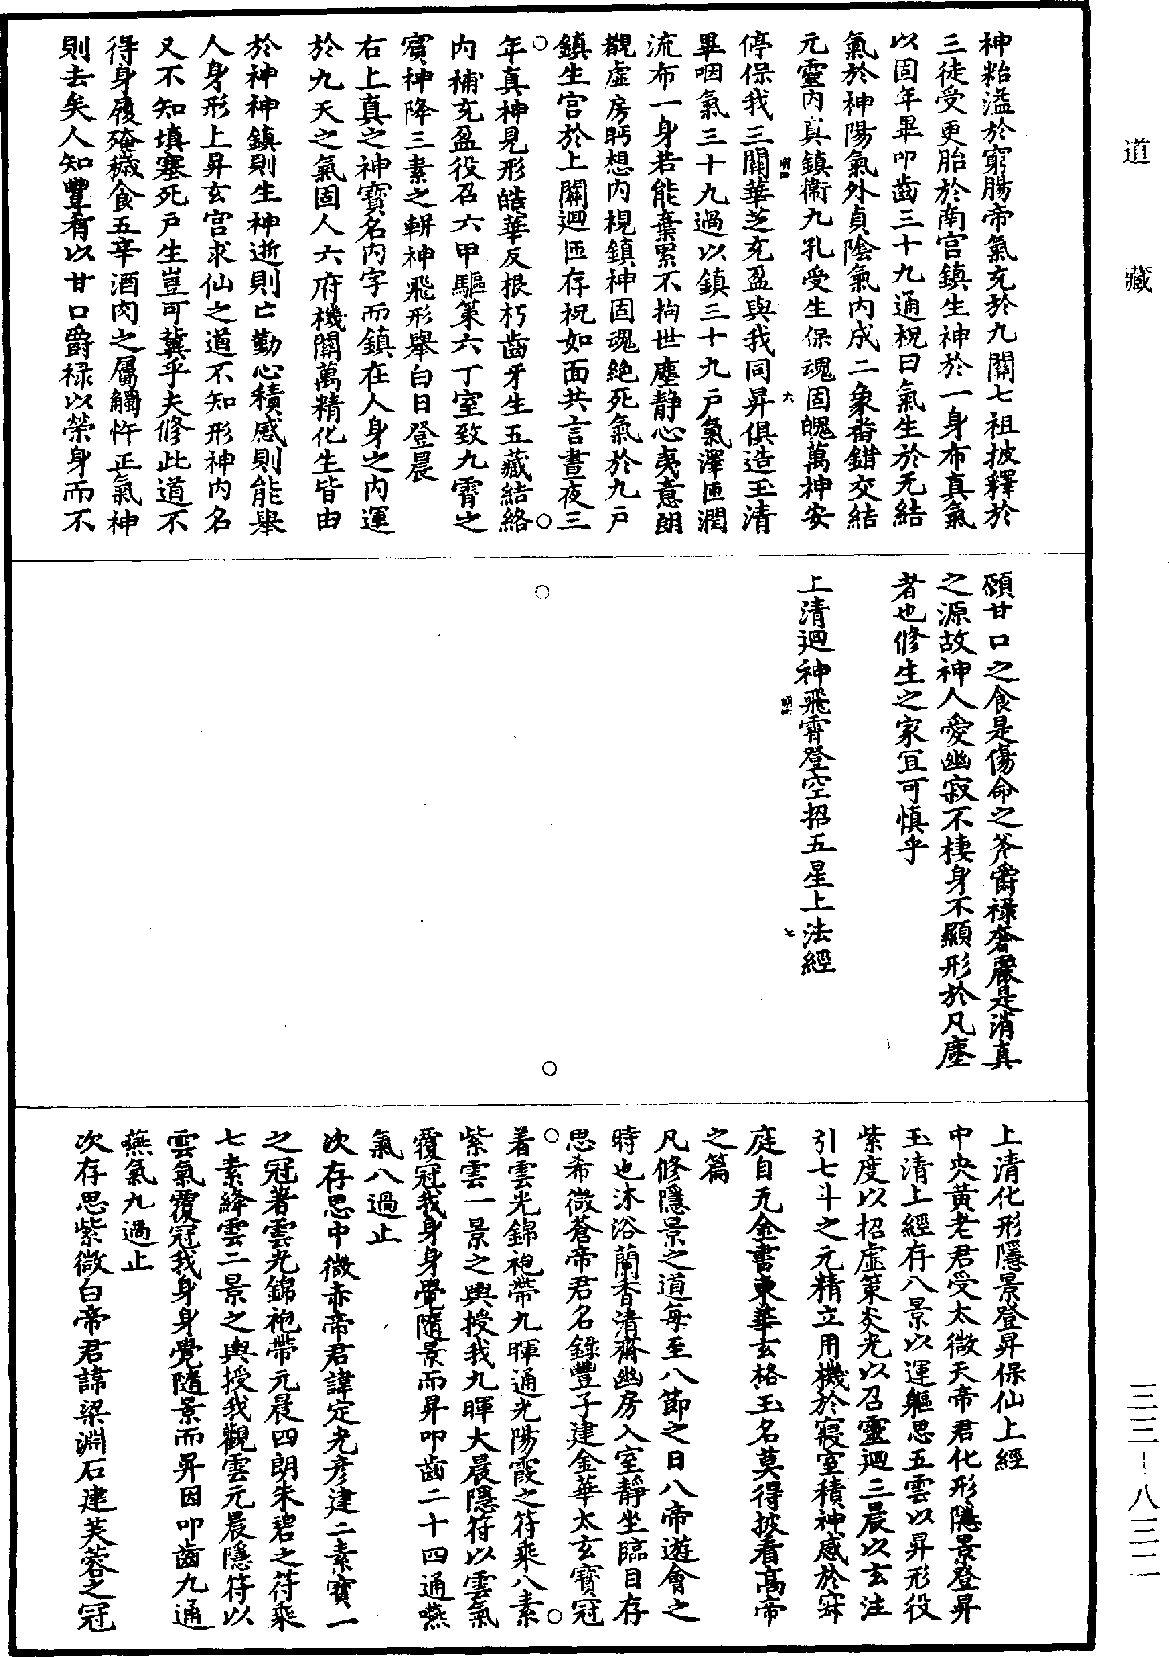 道藏
三三-八三二
神粘溢於窮腸帝氣充於九關七祖披釋於
三徒受更胎於南宮鎮生神於一身布真氣
以固年畢叩齒三十九通祝曰氣生於无結
氣於神陽氣外貞陰氣內成二象畨錯交結
元靈內真鎮衛九孔受生保魂固魄萬神安
六
停保我三關華芝充盈與我同昇俱造玉清
畢咽氣三十九過以鎮三十九戶氣澤匝潤
流布一身若能棄累不拘世塵靜心夷意朗
覩虛房眄想內視鎮神固魂絕死氣於九戶
鎮生宮於上關迴匝存祝如面共言晝夜三
年真神見形皓華反根朽齒牙生五藏結絡
內補充盈役召六甲驅策六丁室致九霄之
賓神降三素之輧神飛形舉白日登晨
右上真之神寶名內字而鎮在人身之內運
於九天之氣固人六府機關萬精化生皆由
於神神鎮則生神逝則亡勤心積感則能舉
人身形上昇玄宮求仙之道不知形神內名
又不知填塞死戶生豈可冀乎夫修此道不
得身履殗穢食五辛酒肉之屬觸忤正氣神
則去矣人知豐肴以甘口爵祿以榮身而不
頤甘口之食是傷命之斧爵祿奢麗是消真
之源故神人愛幽寂不棲身不顯形於凡塵
者也修生之家宜可慎乎
上清迴神飛霄登空招五星上法經
七
上清化形隱景登昇保仙上經
中央黃老君受太微天帝君化形隱景登昇
玉清上經存八景以運軀思五雲以昇形役
紫度以招虛策炎光以召靈迴三晨以玄注
引七斗之元精立用機於寢室積神感於穸
庭自无金書東華玄格玉名莫得披看高帝
之篇
凡修隱景之道每至八節之日八帝遊會之
時也沐浴蘭香清齋幽房入室靜坐臨目存
思希微蒼帝君名錄豐子建金華太玄寶冠
着雲光錦袍帶九暉通光陽霞之符乘八素
紫雲一景之輿授我九暉大晨隱符以雲氣
覆冠我身身覺隨景而昇叩齒二十四通嚥
氣八過止
次存思中微赤帝君諱定光彥建二素寶一
之冠著雲光錦袍帶元晨四朗朱碧之苻乘
七素絳雲二景之輿授我觀雲元晨隱符以
雲氣覆冠我身身覺隨景而昇因叩齒九通
嚥氣九過止
次存思紫微白帝君諱梁淵石建芙蓉之冠